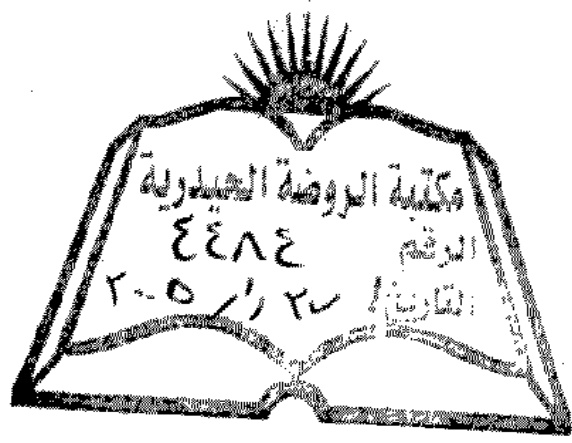 مكتبة الروضة الحيدرية
الرقم ٤٤٨٤
التاريخ / / ٢٠٠٥